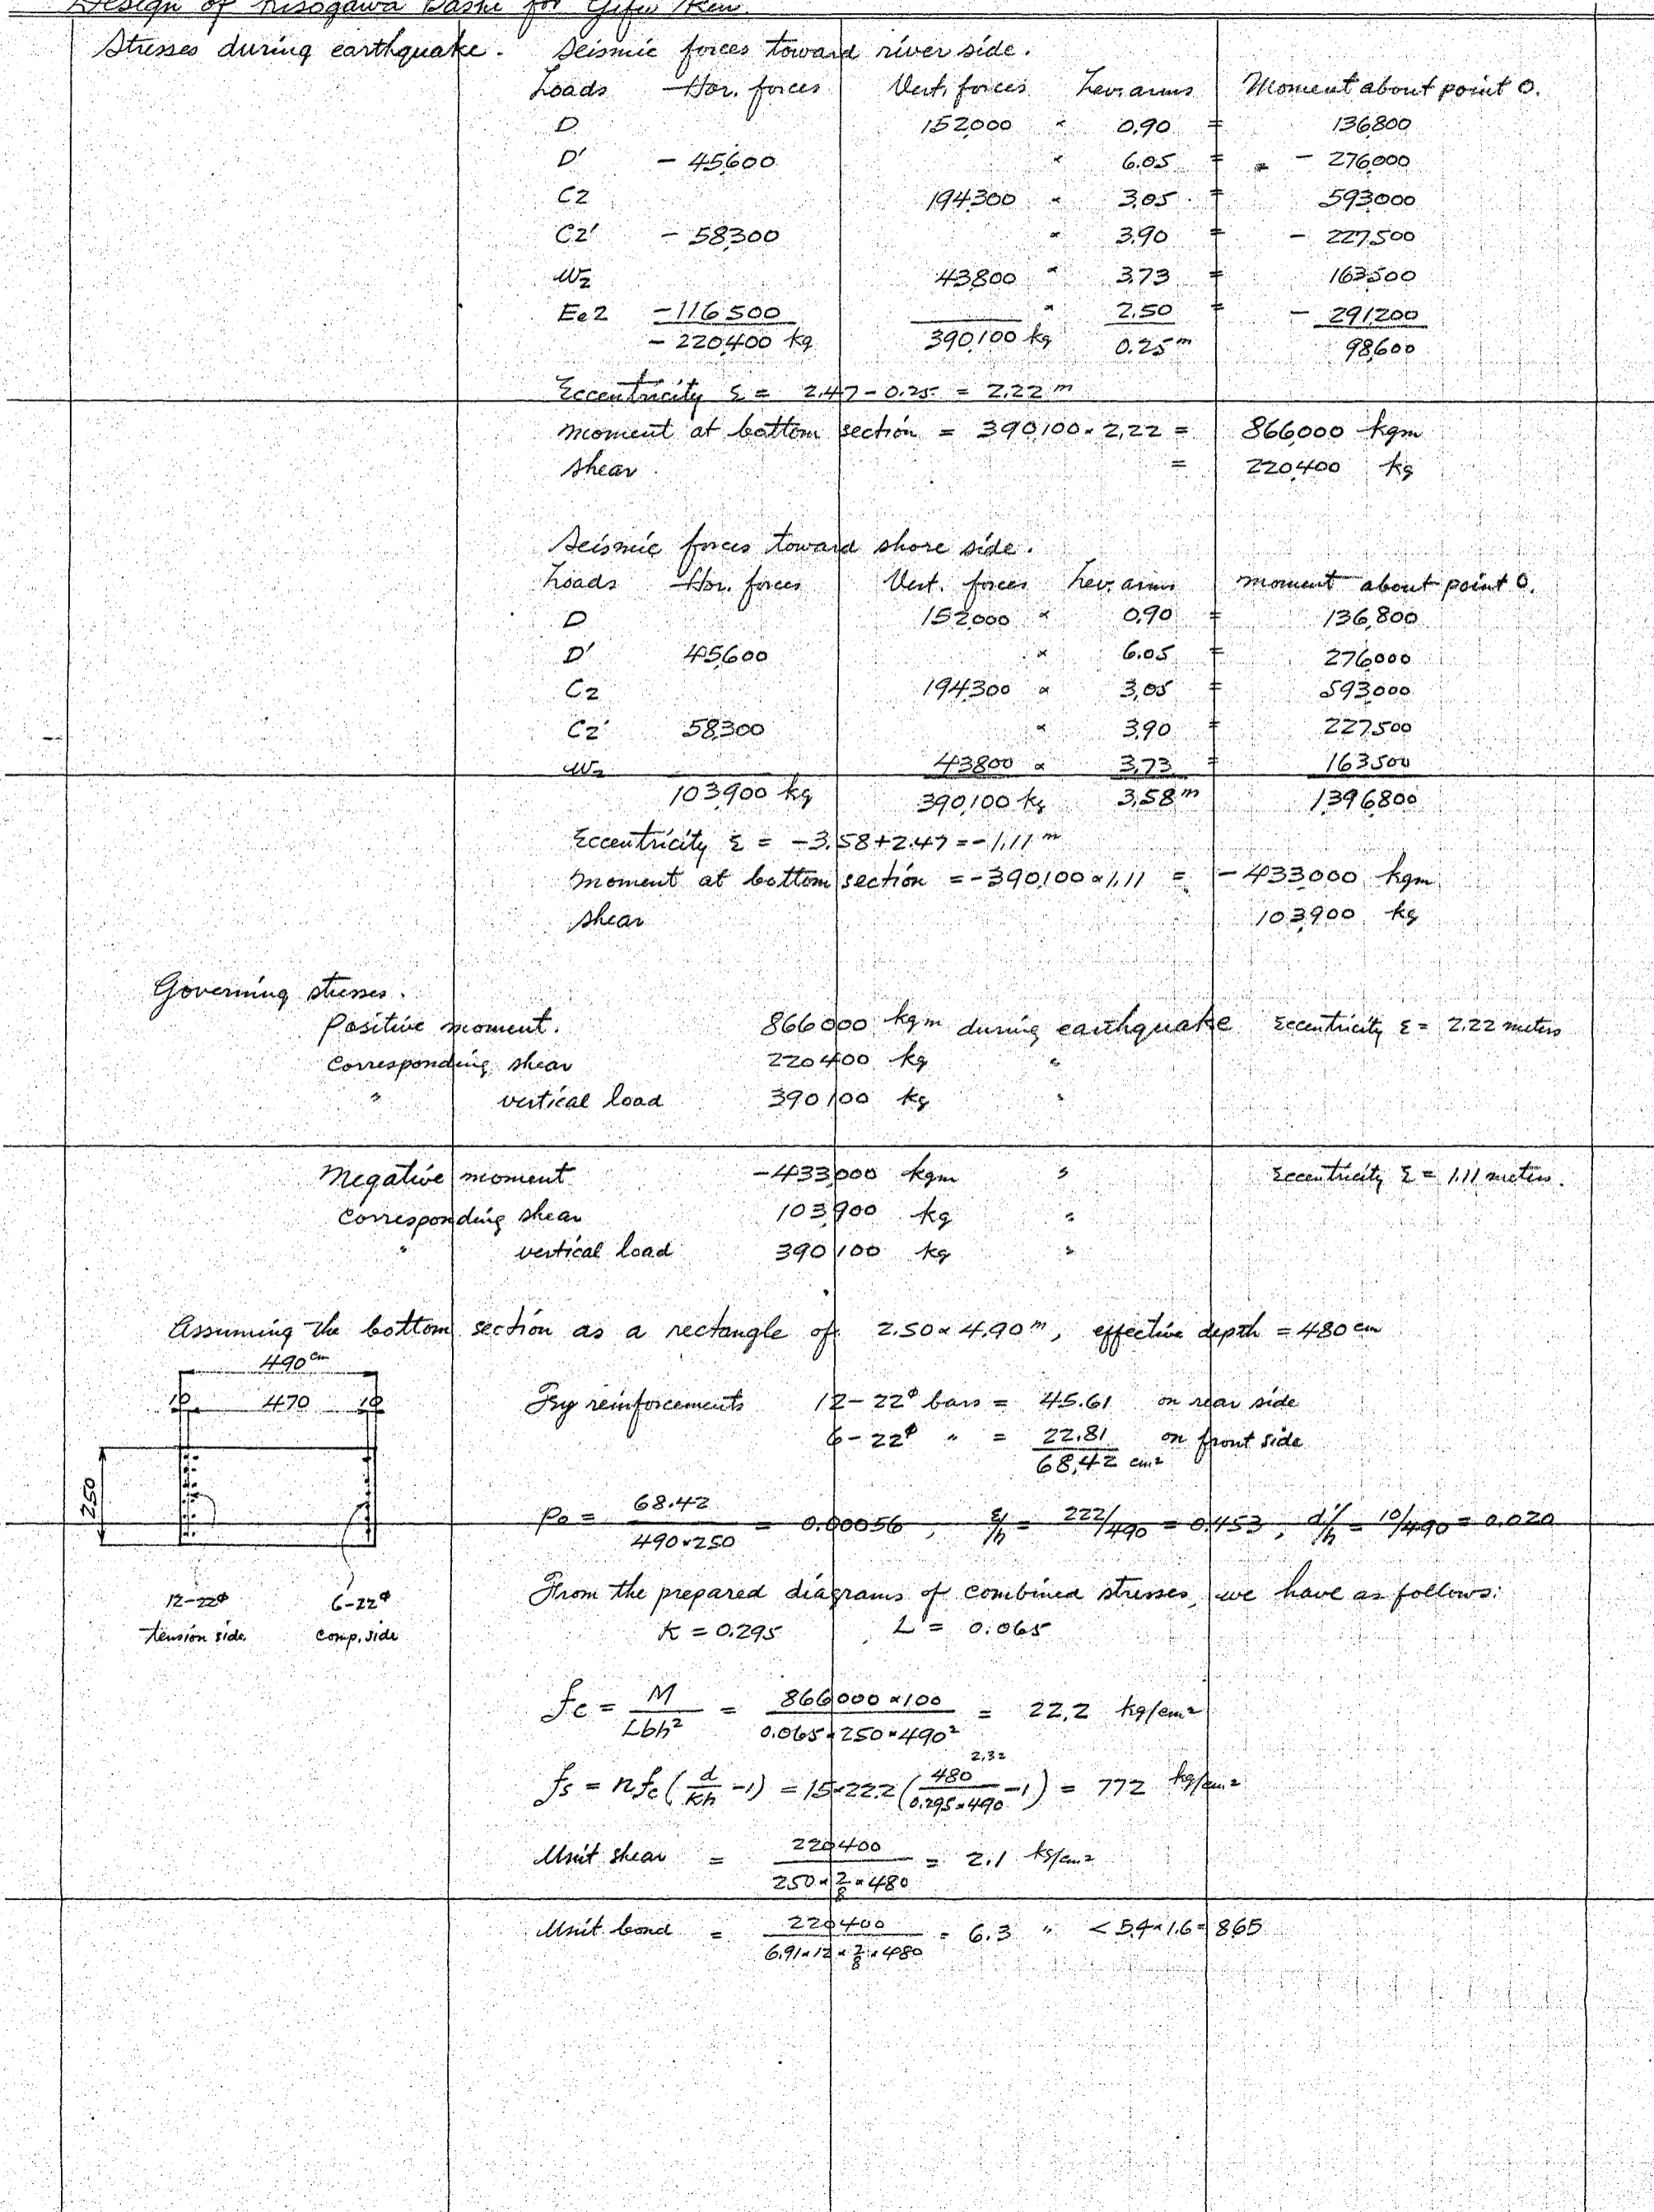 Design of Kisogawa Bashi for Gifu Ken.
Stresses during earthquake. Seismic forces toward river side.
Loads Hor. forces Vert. forces Lev. arms Moment about point O.
D 152000 × 0.90 = 136800
D' - 45600 × 6.05 = - 276000
C2 194300 × 3.05 = 593000
C2' - 58300 × 3.90 = - 227500
W2 43800 × 3.73 = 163500
Ee2 -116500 × 2.50 = - 291200
- 220400 kg 390,100 kg 0.25 m 98,600
Eccentricity Σ = 2.47 - 0.25 = 2.22 m
Moment at bottom section = 390,100 × 2.22 = 866000 kgm
Shear = 220400 kg
Seismic forces toward shore side.
Loads Hor. forces Vert. forces Lev. arms Moment about point O.
D 152000 × 0.90 = 136,800
D' 45600 × 6.05 = 276000
C2 194300 × 3.05 = 593000
C2' 58300 × 3.90 = 227500
W2 43800 × 3.73 = 163500
103,900 kg 390,100 kg 3.58 m 1,396,800
Eccentricity Σ = -3.58 + 2.47 = -1.11 m
Moment at bottom section = -390,100 × 1.11 = -433000 kgm
Shear 103,900 kg
Governing stresses.
Positive moment. 866000 kgm during earthquake Eccentricity Σ = 2.22 meters
Corresponding shear 220400 kg "
" vertical load 390100 kg "
Negative moment -433,000 kgm " Eccentricity Σ = 1.11 meters.
Corresponding shear 103,900 kg "
" vertical load 390100 kg "
Assuming the bottom section as a rectangle of 2.50 × 4.90 m, effective depth = 480 cm
490 cm
10 470 10
250
Try reinforcements 12-22ϕ bars = 45.61 on rear side
6-22ϕ " = 22.81 on front side
68.42 cm²
Po = 68.42 / 490×250 = 0.00056, Σ/h = 222/490 = 0.453, d'/h = 10/490 = 0.020
12-22ϕ 6-22ϕ
tension side. comp. side
From the prepared diagrams of combined stresses, we have as follows:
K = 0.295 L = 0.065
fc = M / Lbh² = 866000 × 100 / 0.065 × 250 × 490² = 22.2 kg/cm²
2.32
fs = nfc (d / Kh - 1) = 15×22.2 (480 / 0.295×490 - 1) = 772 kg/cm²
Unit shear = 220400 / 250 × 7/8 × 480 = 2.1 kg/cm²
Unit bond = 220400 / 6.91 × 12 × 7/8 × 480 = 6.3 " < 5.4 × 1.6 = 8.65